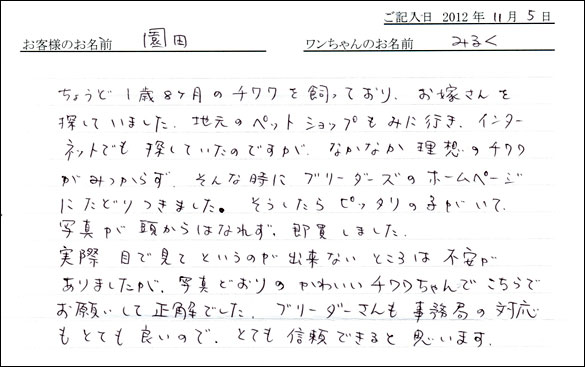 ご記入日 2012 年 11 月 5 日
お客様のお名前 園田 ワンちゃんのお名前 みるく
ちょうど 1歳8ヶ月のチワワを飼っており、お嫁さんを
探していました。地元のペットショップもみに行き、インター
ネットでも探していたのですが、なかなか理想のチワワ
がみつからず、そんな時にブリーダーズのホームページ
にたどりつきました。そうしたらピッタリの子がいて、
写真が頭からはなれず、即買しました。
実際目で見てというのが出来ないところは不安が
ありましたが、写真どおりのかわいいチワワちゃんでこちらで
お願いして正解でした。ブリーダーさんも事務局の対応
もとても良いので、とても信頼できると思います。